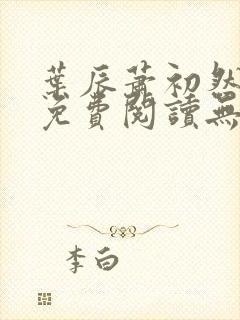 葉辰蕭初然
免費閱讀無
李白